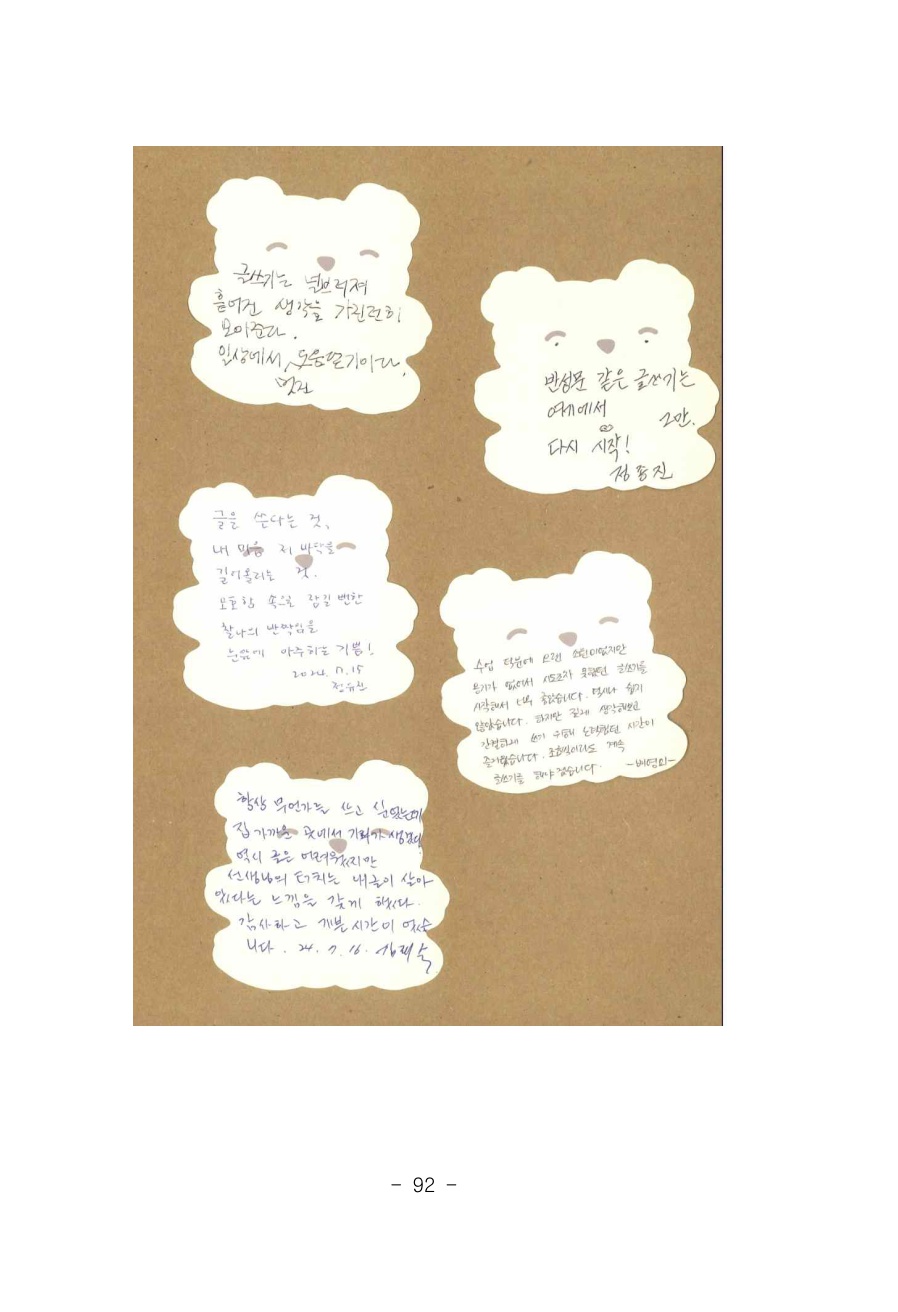 글쓰기는 널브러져
흩어진 생각을 가지런히
모아준다.
일상에서, 도움닫기이다.
멋진
반성문 같은 글쓰기는
어제에서 그만.
다시 시작!
정종진
글을 쓴다는 것,
내 마음 저 바닥을
길어올리는 것.
모호함 속의
찰나의 반짝임을
눈앞에 마주하는 기쁨!
2024. 7. 15
정유진
수업 덕분에 오랜 소원이었지만
용기가 없어서 시도조차 못했던 글쓰기를
시작해서 너무 좋았습니다. 역시나 쉽지
않았습니다. 하지만 깊게 생각해보고
간결하게 쓰기 위해 노력했던 시간이
즐거웠습니다. 조금씩이라도 계속
글쓰기를 해야겠습니다. -배영미-
항상 무언가는 쓰고 싶었는데
집 가까운 곳에서 기회가 생겼다
역시 글은 어려웠지만
선생님의 터치는 내글이 살아
있다는 느낌을 갖게 했다.
감사하고 기쁜 시간이 었습
니다. 24. 7. 16.
- 92 -